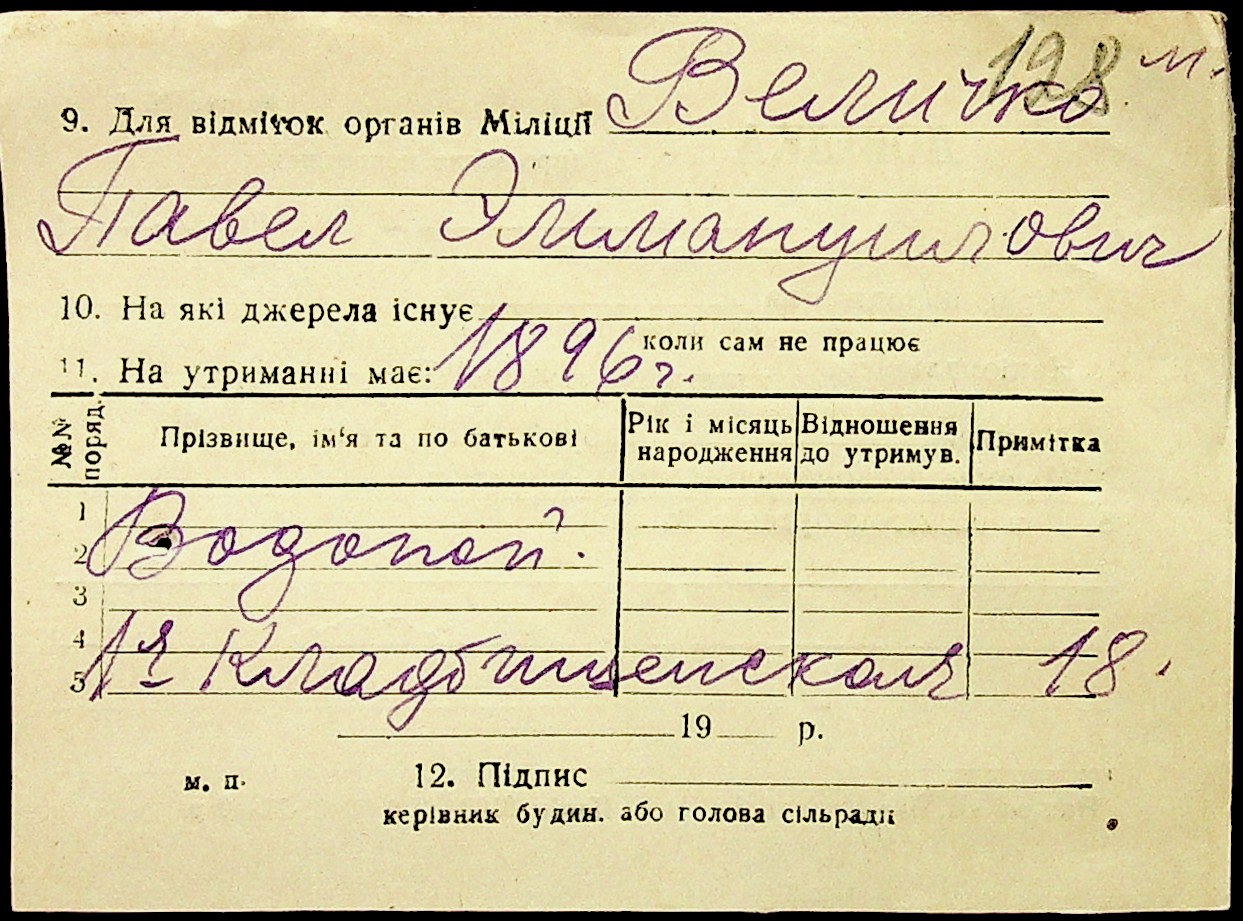 198 м.
9. Для відміток органів Міліції Величко
Павел Эммануилович
10. На які джерела існує
коли сам не працює
11. На утриманні має: 1896 г.
№№ поряд. Прізвище, ім'я та по батькові Рік і місяць народження Відношення до утримув. Примітка
1
2 Водопой.
3
4
5 1я Кладбищенская 18.
19 р.
м. п. 12. Підпис
керівник будин. або голова сільради